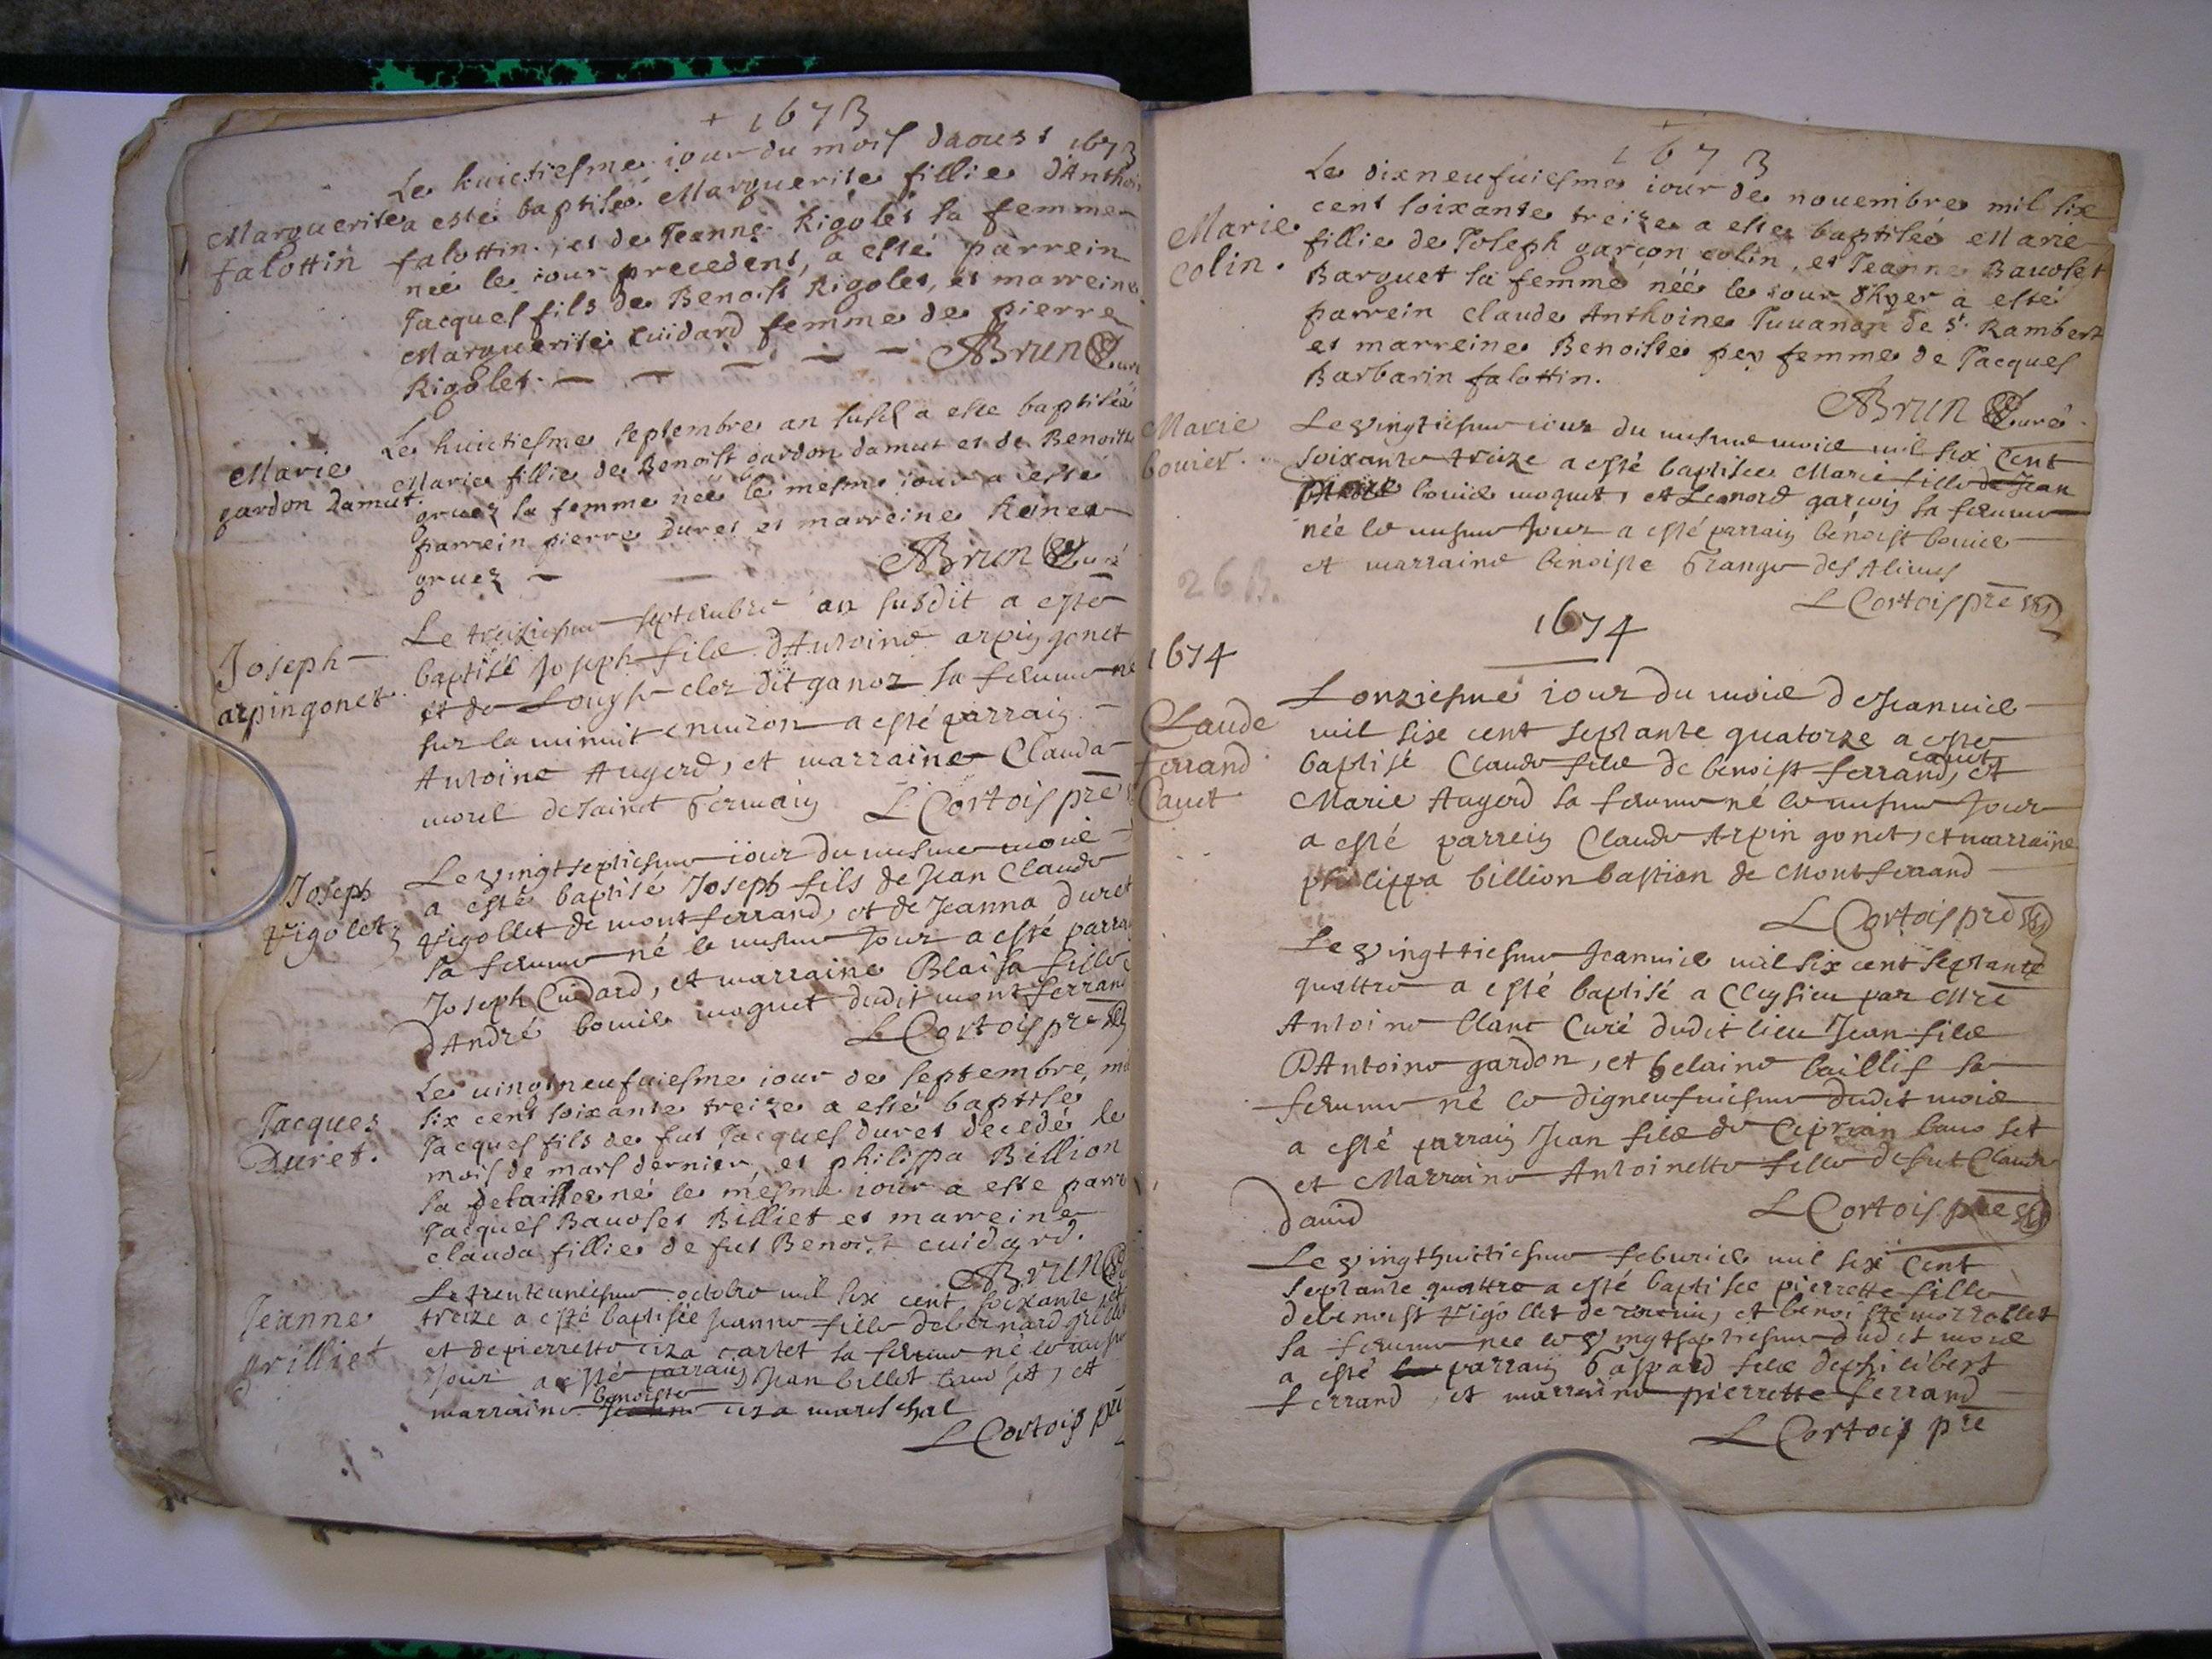 + 1673
Le huictiesme iour du mois daoust 1673
Marguerite
falottin
a esté baptisée Marguerite fillie d'Anthoi
falottin, et de Jeanne Rigolet sa femme
née le iour precedent, a esté parrein
Jacques fils de Benoist Rigolet, et marreine
Marguerite Cuidard femme de pierre
Rigolet. ABrun Curé
Marie
gardon Damut
Le huictiesme septembre an susd a esté baptisée
Marie fillie de Benoist gardon damut et de Benoiste
gruez sa femme née le mesme iour a esté
parrein pierre Duret et marreine Reine
gruez ABrun Curé
Joseph
arpingonet
Le treiziesme septembre an susdit a esté
baptisé Joseph filz d'Antoine arpin gonet
et de clez dit ganoz sa femme né
sur la minuit environ a esté parrain
Antoine Augerd, et marraine Clauda
morel de Sainct Germain L Cortois pre
Joseph
Vigolet
Le vingtseptiesme iour du mesme mois
a esté baptisé Joseph fils de Jean Claude
Vigollet de montferrand, et de Jeanna Duret
sa femme né le mesme Jour a esté parra
Joseph Cuidard, et marraine Blaisa fille
d'André bouvie moguet dudit montferrand
L Cortois pre
Jacques
Duret.
Le uingtneufuiesme iour de septembre mil
six cent soixante treize a esté baptisé
Jacques fils de fut Jacques duret decedé le
mois de mars dernier, et philippa Billion
sa delaissée né le mesme iour a esté parr
Jacques Bauoset Billiet et marreine
clauda fillie de fut Benoist cuidard.
ABrun
Jeanne
grilliet
Le trenteuniesme octobre mil six cent soixante et
treize a esté baptisée Jeanne fille de bernard grillie
et de pierrette uza cartet sa femme né le mesme
Jour a esté parrain Jean billet bauoset, et
benoiste
marraine Jeanne uza mareschal
L Cortois pre
1673
Marie
colin.
Le dixneufuiesme iour de nouembre mil six
cent soixante treize a esté baptisée Marie
fillie de Joseph garçon colin, et Jeanne Bauoset
Barquet sa femme née le iour d'hyer a esté
parrein claude Anthoine Juuanon de St. Rambert
et marreine Benoiste pey femme de Jacques
Barbarin falottin.
ABrun Curé
Marie
bouier.
Le vingtiesme iour du mesme mois mil six cent
soixante treize a esté baptisée Marie fille de Jean
bouier moguet, et Leonord garçoin sa femme
née le mesme Jour a esté parrain benoist bouier
et marraine benoiste Grange des Alimes
L Cortois pre
26 B.
1674
1674
Claude
ferrand
Cauet
L'onziesme iour du mois de Jeanvier
mil sixe cent septante quatorze a esté
cauet
baptisé Claude filz de benoist ferrand, et
Marie Augerd sa femme né le mesme Jour
a esté parrein Claude Arpin gonet, et marraine
philippa billion bastian de Montferrand
L Cortois pre
Le vingttiesme Jeanvier mil six cent septante
quattre a esté baptisé a Cleysieu par Mre
Antoine blanc Curé dudit lieu Jean filz
D'Antoine gardon, et helaine baillif sa
femme né le digneufuiesme dudit mois
a esté parrain Jean filz de Ciprian bauoset
et Marraine Antoinette fille de fut Claude
Dauid L Cortois pre
Le vingthuittiesme feburier mil six cent
septante quattre a esté baptisée pierrette fille
de benoist Vigollet de , et benoiste morrollet
sa femme née le vingtseptiesme dudit mois
a esté parrain Gaspard filz de philibert
ferrand, et marraine pierrette ferrand
L Cortois pre